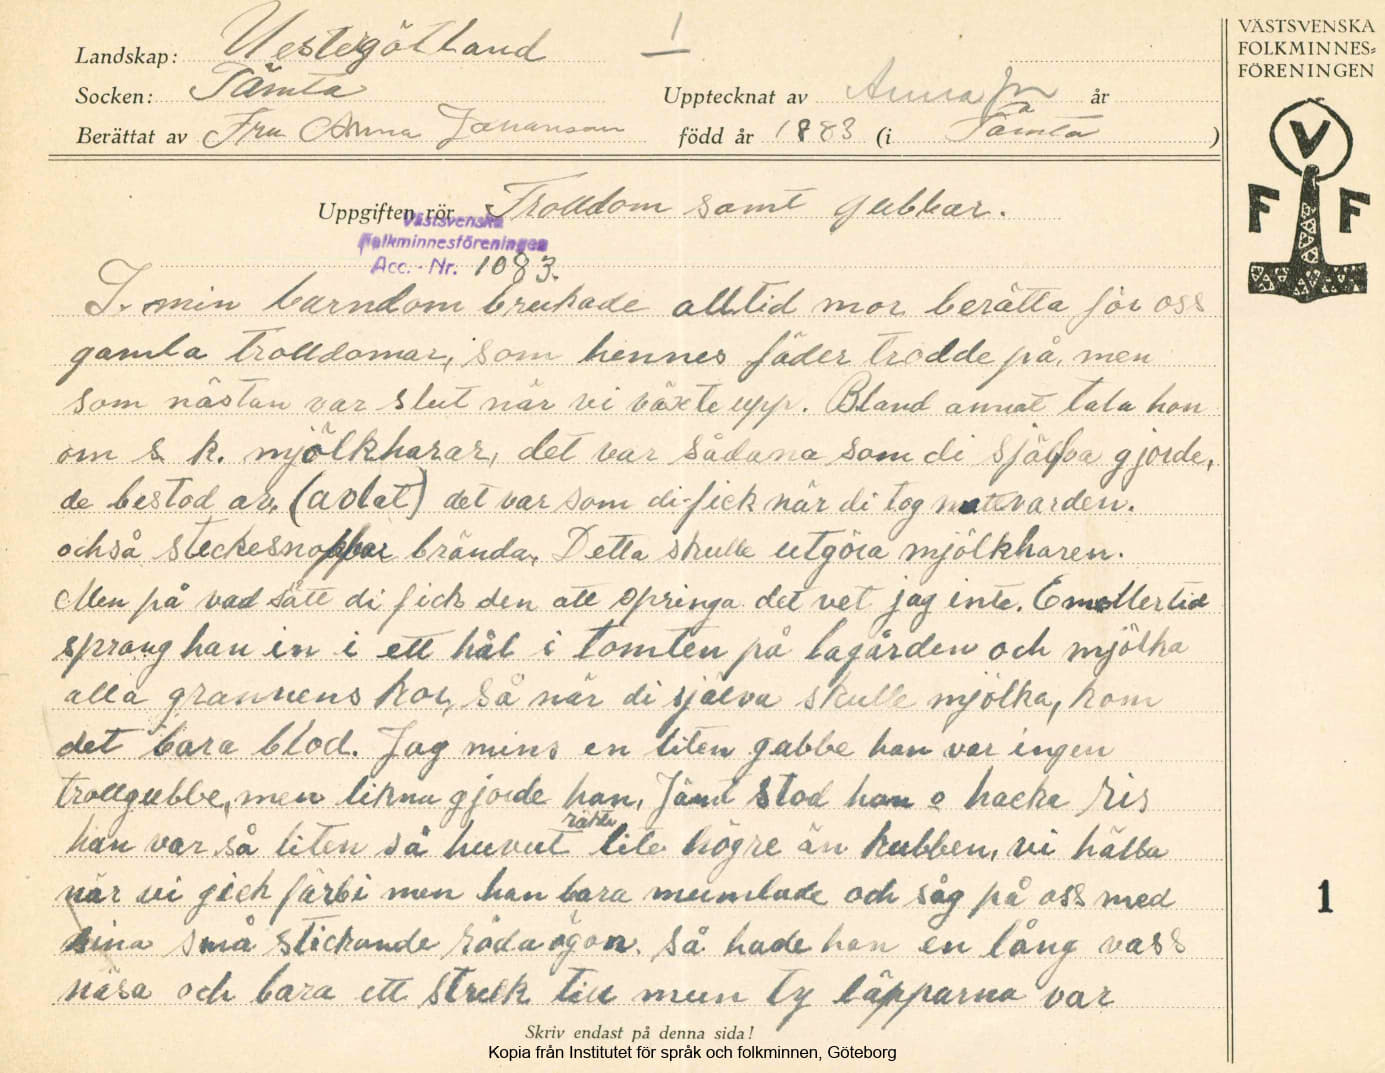 1
VÄSTSVENSKA
FOLKMINNES=
FÖRENINGEN
V
F F
Landskap: Vestergötland
Socken: Tämta
Upptecknat av Anna Jn år
Berättat av Fru Anna Johanson född år 1883 (i Tämta)
Uppgiften rör Trolldom samt gubbar.
Västsvenska
Folkminnesföreningen
Acc. - Nr. 1083.
I min barndom brukade alltid mor berätta för oss
gamla trolldomar, som hennes fäder trodde på, men
som nästan var slut när vi växte upp. Bland annat tala hon
om s. k. mjölkharar, det var sådana som di själva gjorde,
de bestod av. (aolat) det var som di fick när di tog nattvarden.
också steckesnoppar brända. Detta skulle utgöra mjölkharen.
Men på vad sätt di fick den att springa det vet jag inte. Emellertid
sprang han in i ett hål i tomten på lagården och mjölka
alla grannens kor, Så när di själva skulle mjölka, kom
det bara blod. Jag mins en liten gubbe han var ingen
trollgubbe, men likna gjorde han, Jämt stod han o hacka ris
han var så liten så huvut räkte lite högre än kubben, vi hälsa
när vi gick färbi men han bara mumlade och såg på oss med
sina små stickande röda ögon. Så hade han en lång vass
näsa och bara ett streck till mun ty läpparna var
1
Skriv endast på denna sida!
Kopia från Institutet för språk och folkminnen, Göteborg